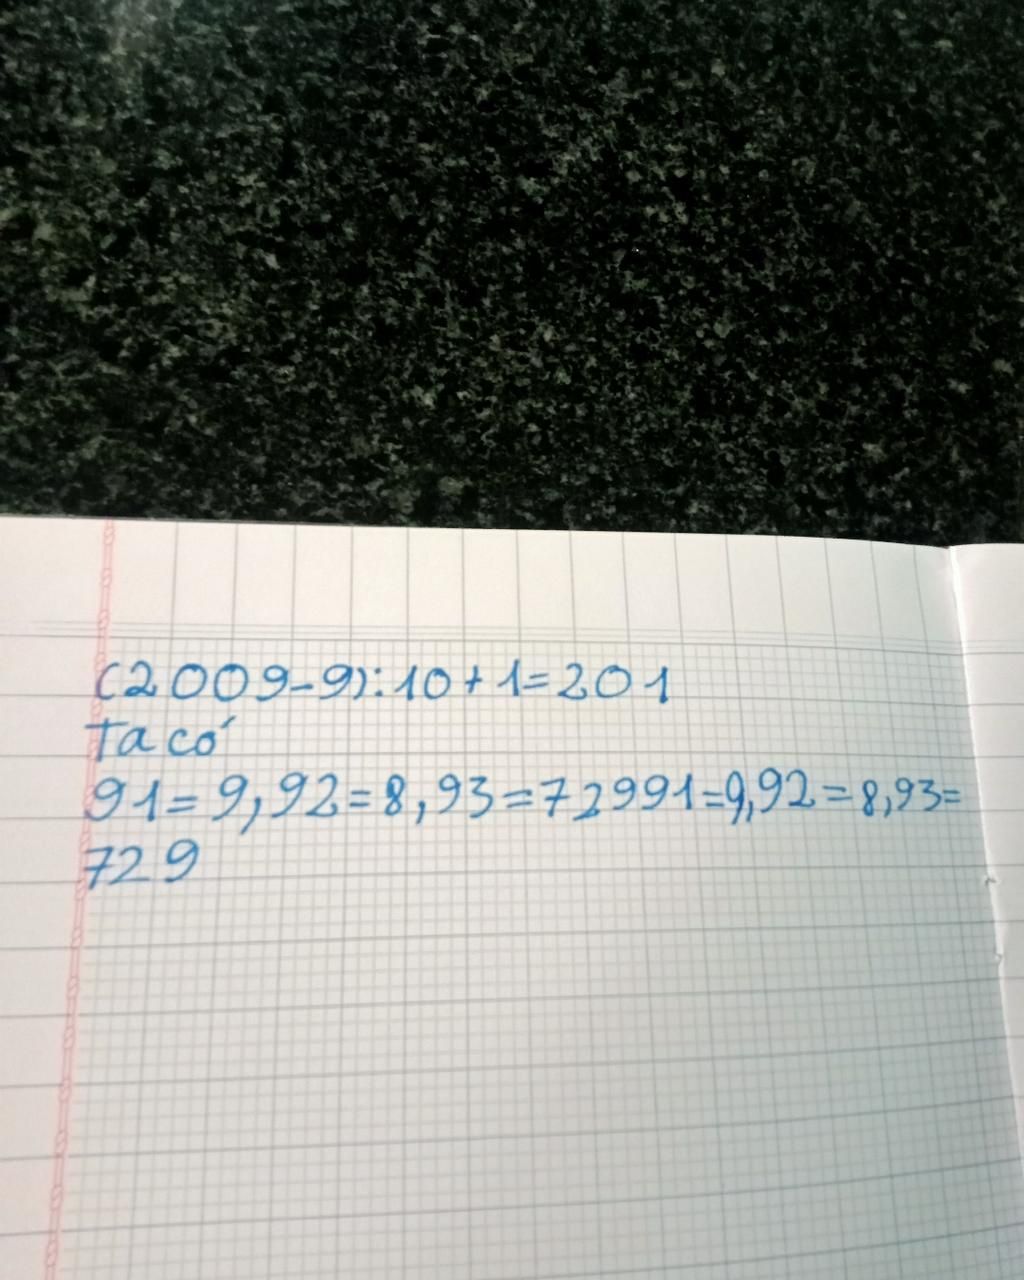 (2009-9):10+1=201
Ta có
91=9,92=8,93=72991=9,92=8,93=
729